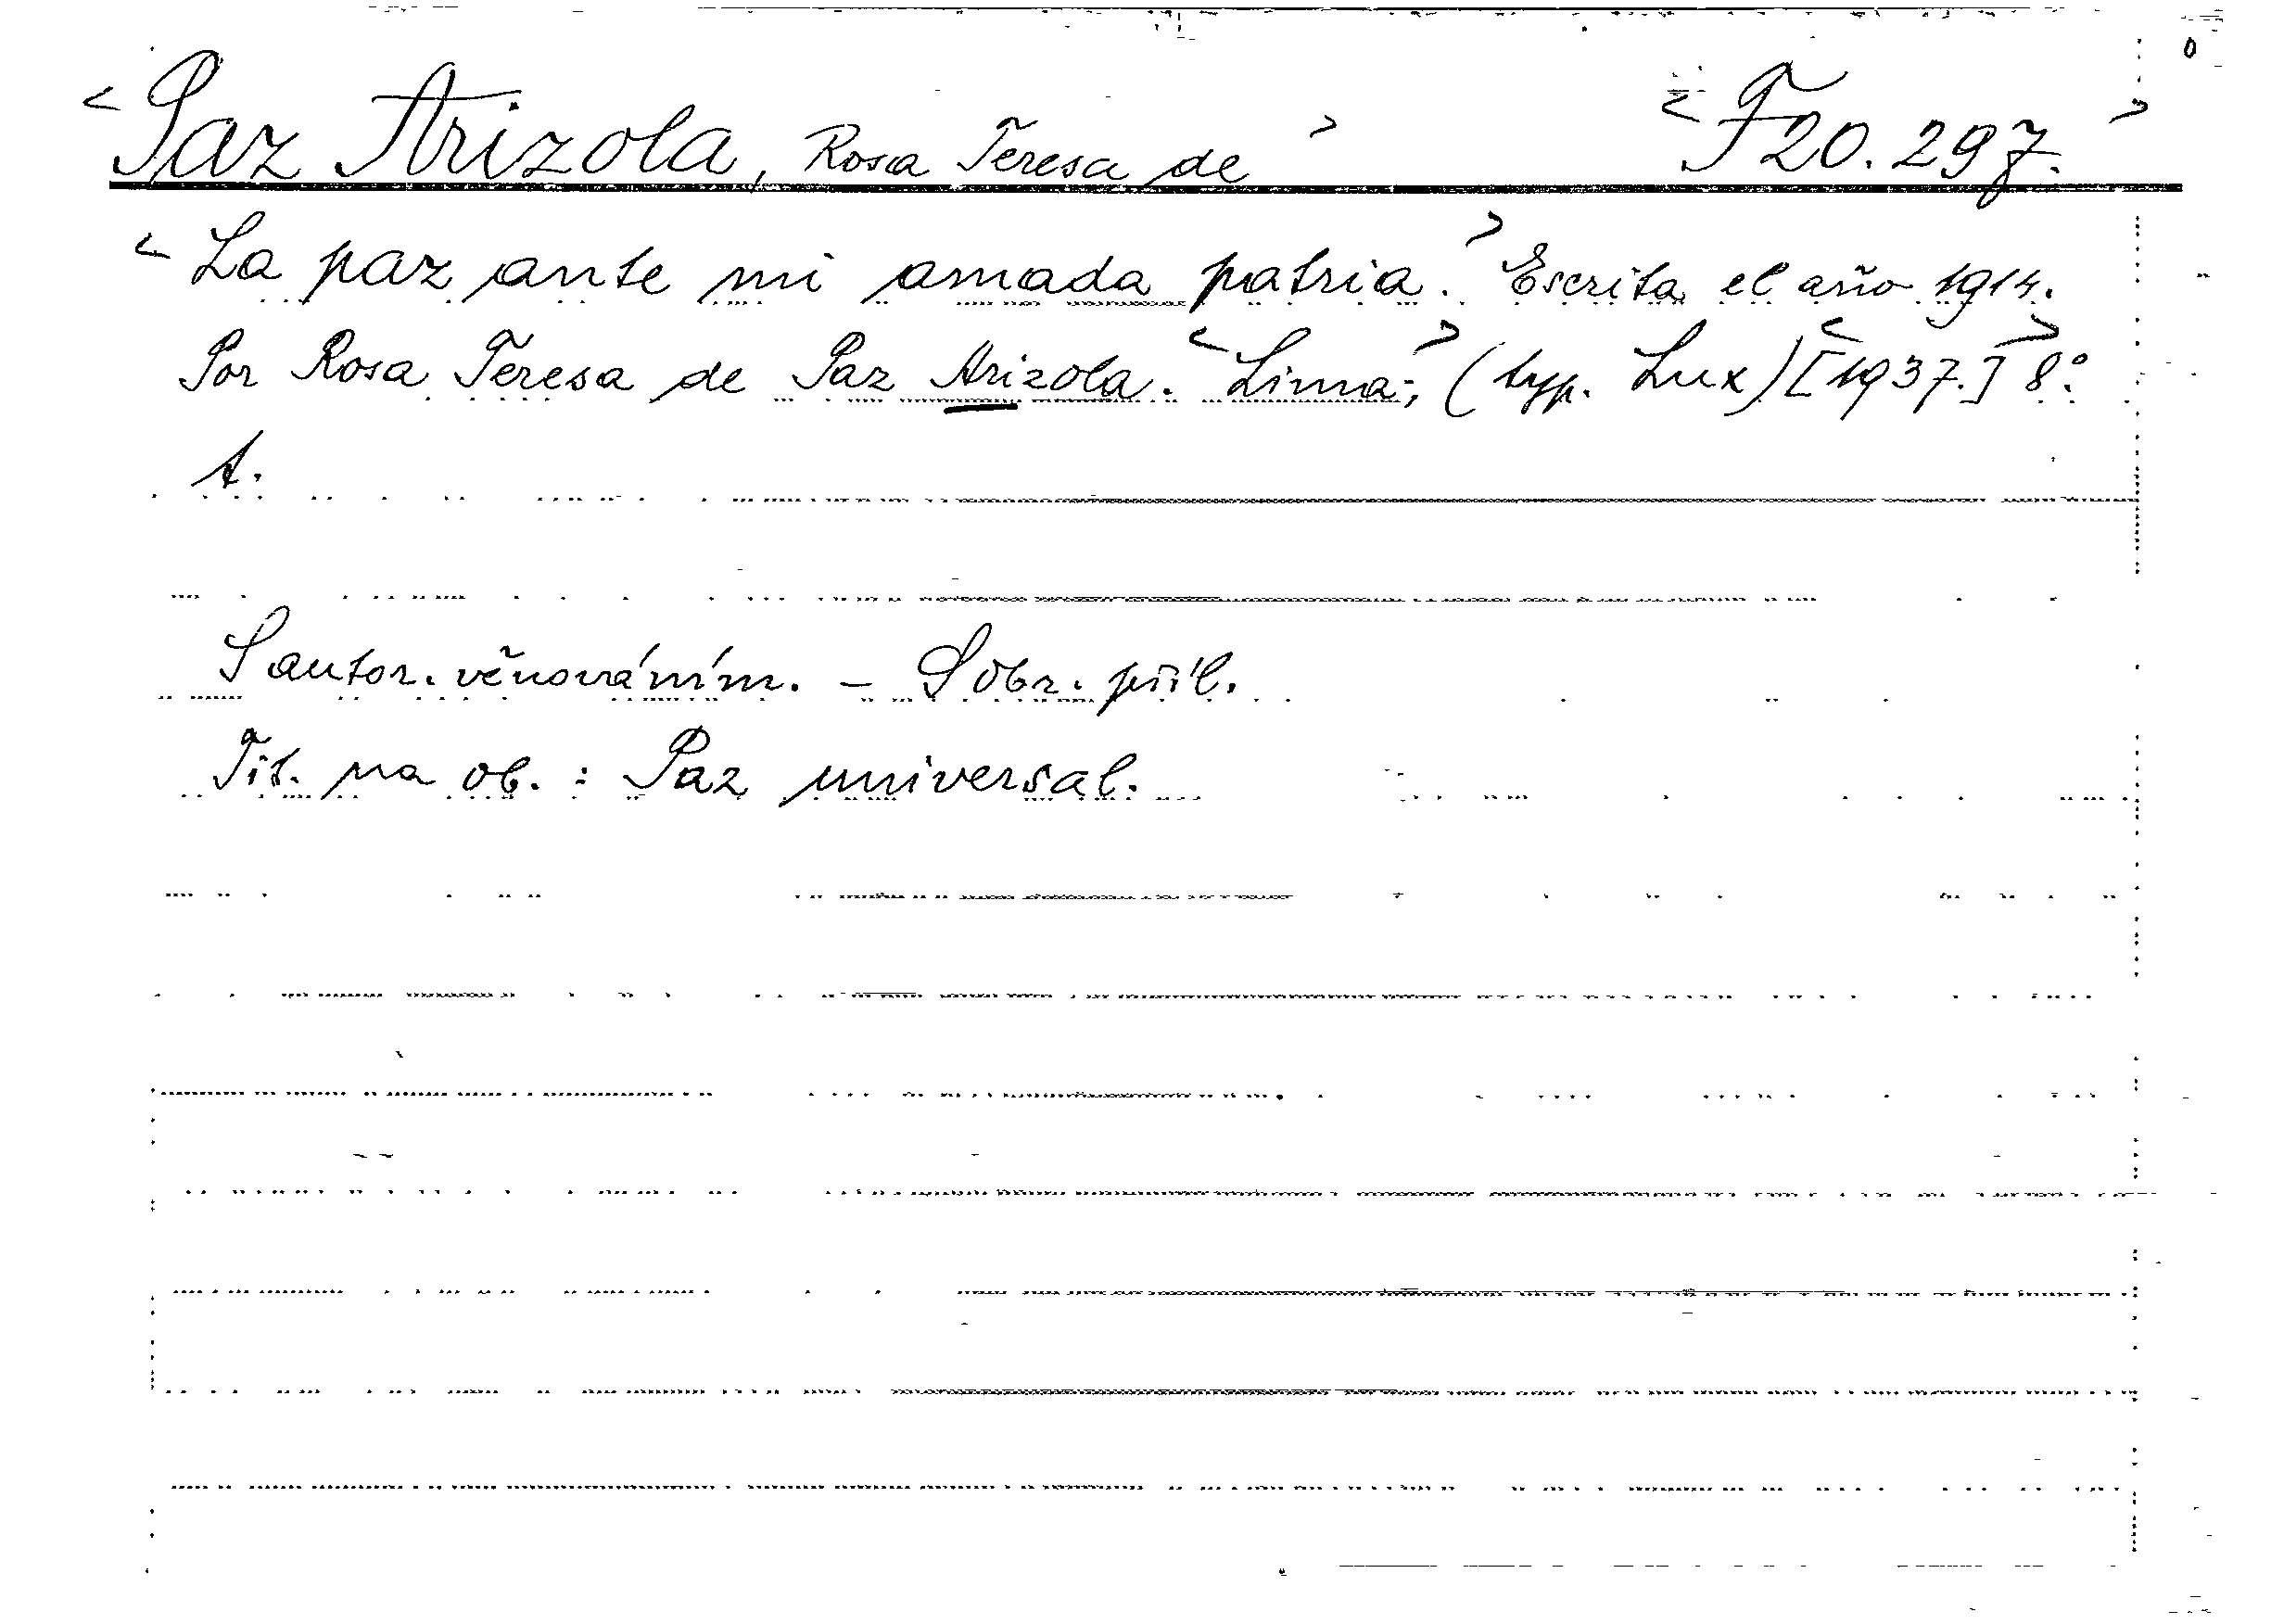 <Paz Arizola, Rosa Teresa de> <F 20.297.>
<La paz ante mi amada patria.> Escrita el año 1914.
Por Rosa Teresa de Paz Arizola. <Lima>, (typ. Lux) <[1937.]> 8°.
A.
S autor. věnováním. - S obr. příl.
Tit. na ob.: Paz universal.